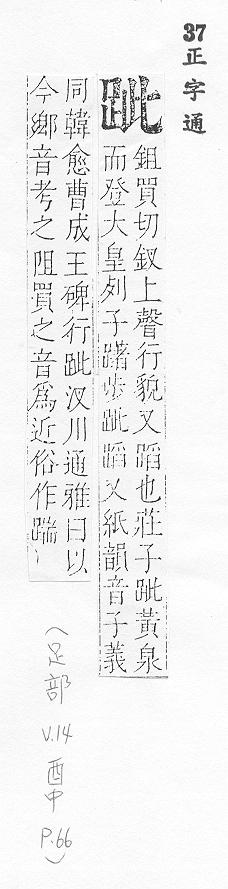 37正字通
跐
鉏買切釵上聲行貌又蹈也莊子跐黃泉
而登大皇列子躇步跐蹈又紙韻音子義
同韓愈曹成王碑行跐汊川通雅曰以
今鄉音考之阻買之音爲近俗作踹
(足部 V.14 酉中 P.66)